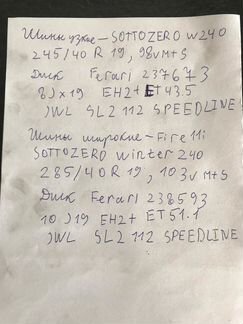 Шины узкие – SOTTOZERO W240
245/40 R 19, 98V M+S
Диск Ferari 237673
8J x 19 EH2+ ET 43.5
JWL SL2 112 SPEEDLINE
Шины широкие – Fire11i
SOTTOZERO Winter 240
285/40 R 19, 103V M+S
Диск Ferari 238593
10 J 19 EH2+ ET 51.1
JWL SL2 112 SPEEDLINE